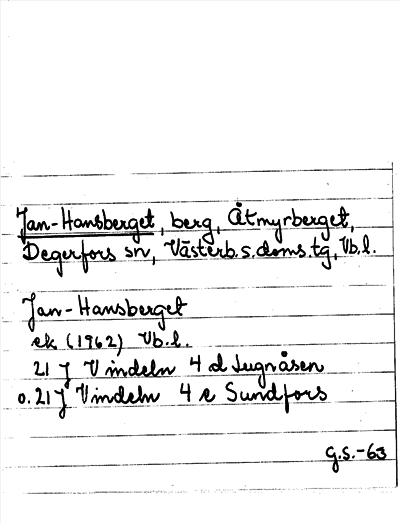 Jan-Hansberget, berg, Åtmyrberget,
Degerfors sn, Västerb.s.doms.tg, Vb.l.
Jan-Hansberget
ek (1962) Vb.l.
21 J Vindeln 4 d Lugnåsen
o. 21 J Vindeln 4 e Sundfors
G.S.-63